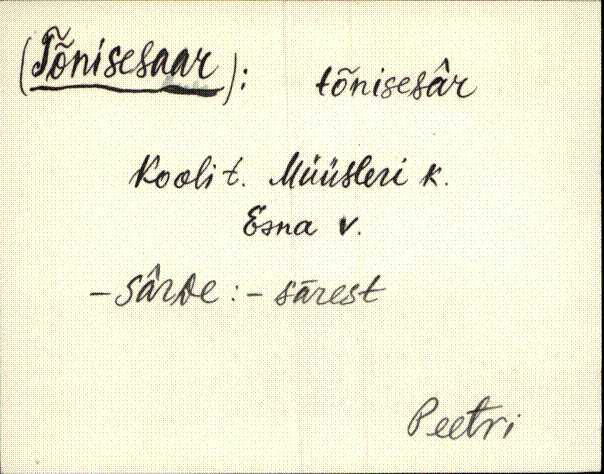 (Tõnisesaar): tõnisesâr
Koolit. Müüsleri k.
Esna v.
- sârde : - sārest
Peetri